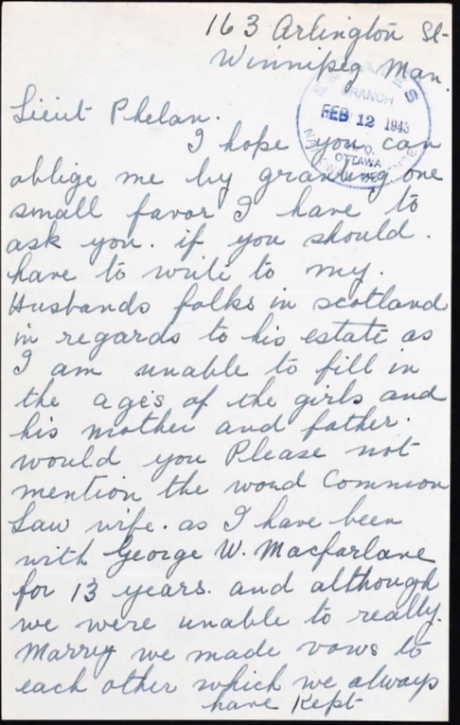 163 Arlington St
Winnipeg Man.
BRANCH
FEB 12 1943
OTTAWA
Lieut Phelan.
I hope you can
oblige me by granting one
small favor I have to
ask you. if you should.
have to write to my.
Husbands folks in scotland
in regards to his estate as
I am unable to fill in
the ages of the girls and
his mother and father.
would you Please not
mention the word Common
Law wife. as I have been
with George W. Macfarlane
for 13 years. and although
we were unable to really.
Marry we made vows to
each other which we always
have Kept